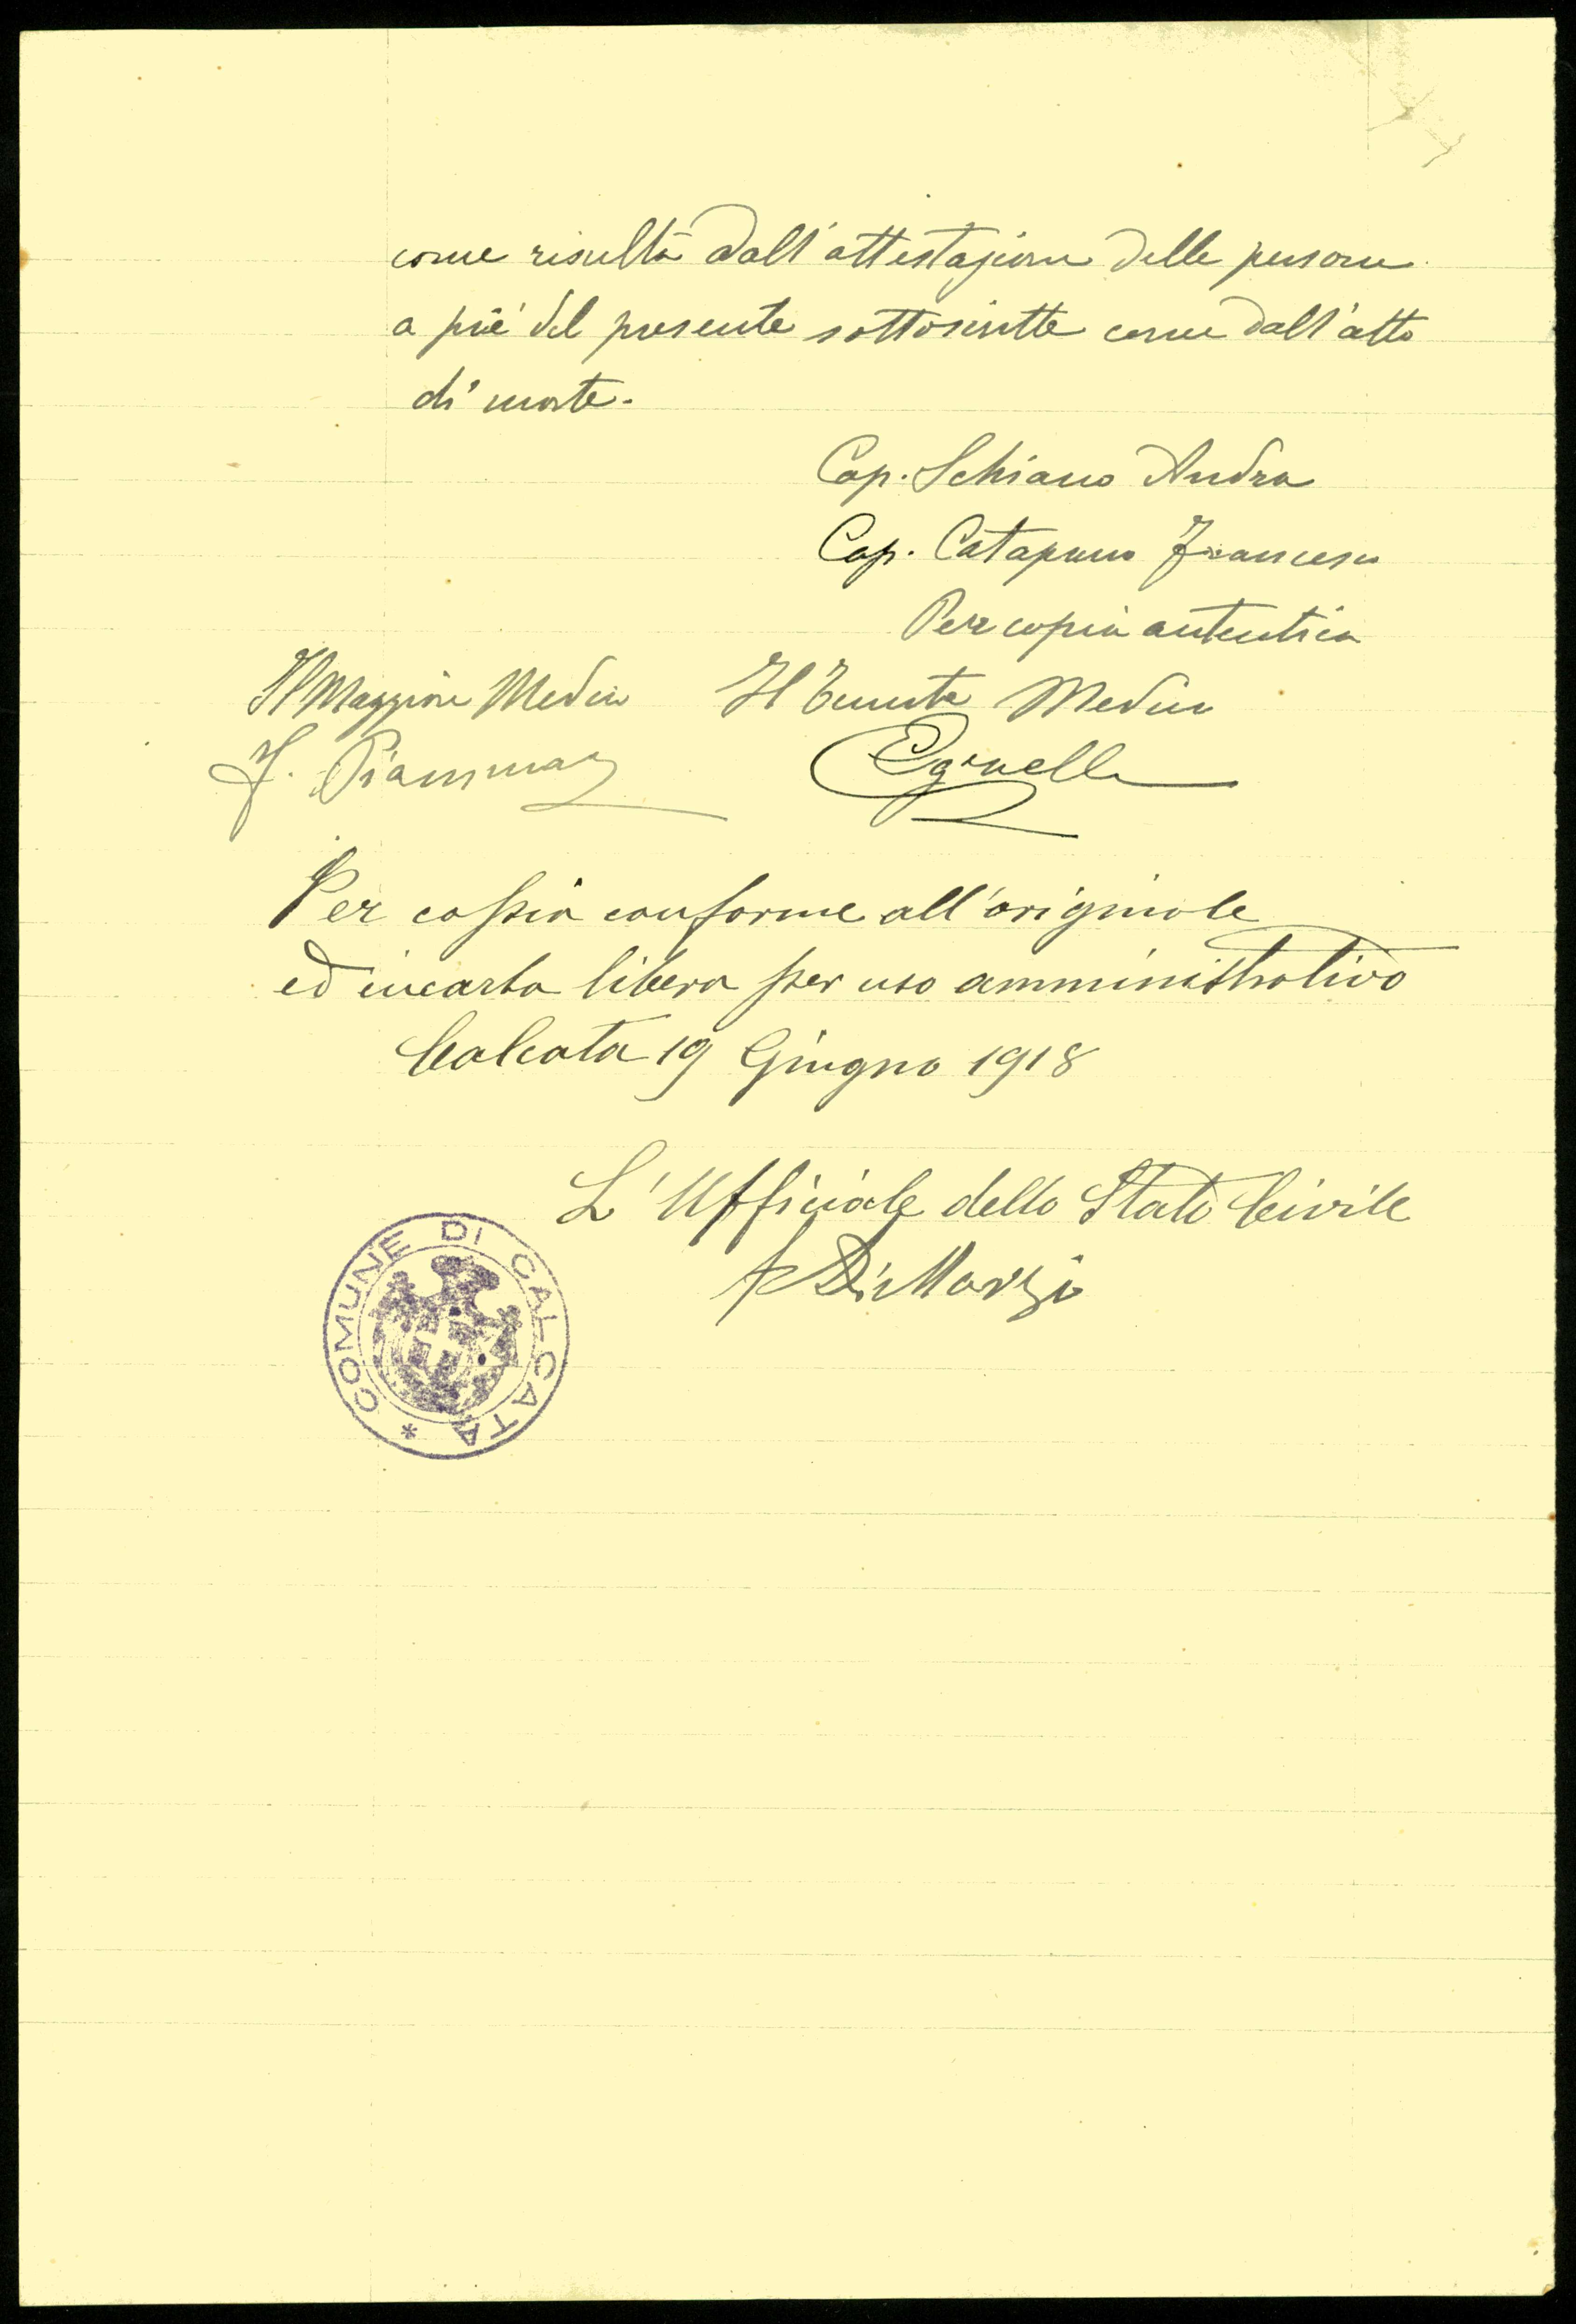 come risulta dall'attestazione delle persone
a piè del presente sottoscritte come dall'atto
di morte.
Cap. Schiano Andrea
Cap. Catapano Francesco
Per copia autentica
Il Maggiore Medico Il Tenente Medico
F.
Per copia conforme all'originale
ed in carta libera per uso amministrativo
Calcata 19 Giugno 1918
L'Ufficiale dello Stato Civile
Di Marzio
COMUNE DI CALCATA *